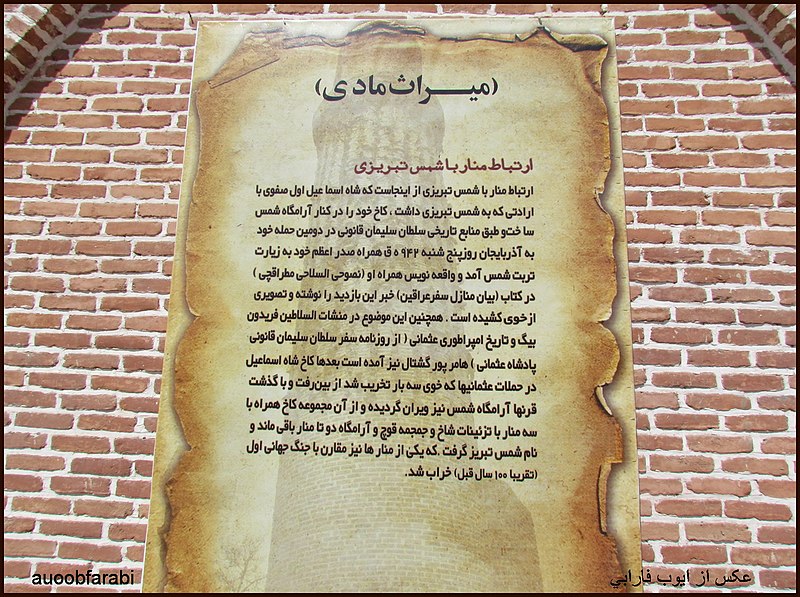 (میراث مادی)
ارتباط منار با شمس تبریزی
ارتباط منار با شمس تبریزی از اینجاست که شاه اسما عیل اول صفوی با
ارادتی که به شمس تبریزی داشت ، کاخ خود را در کنار آرامگاه شمس
سا خت.و طبق منابع تاریخی سلطان سلیمان قانونی در دومین حمله خود
به آذربایجان روزپنج شنبه ۹۴۲ ه ق همراه صدر اعظم خود به زیارت
تربت شمس آمد و واقعه نویس همراه او (نصوحی السلاحی مطراقچی )
در کتاب (بیان منازل سفرعراقین) خبر این بازدید را نوشته و تصویری
از خوی کشیده است . همچنین این موضوع در منشات السلاطین فریدون
بیگ و تاریخ امپراطوری عثمانی ( از روزنامه سفر سلطان سلیمان قانونی
پادشاه عثمانی ) هامر پور گشتال نیز آمده است بعدها کاخ شاه اسماعیل
در حملات عثمانیها که خوی سه بار تخریب شد از بین‌رفت و با گذشت
قرنها آرامگاه شمس نیز ویران گردیده و از آن مجموعه کاخ همراه با
سه منار با تزئینات شاخ و جمجمه قوچ و آرامگاه دو تا منار باقی ماند و
نام شمس تبریز گرفت .که یکی از منار ها نیز مقارن با جنگ جهانی اول
(تقریبا ۱۰۰ سال قبل) خراب شد.
auoobfarabi
عکس از ایوب فارابي